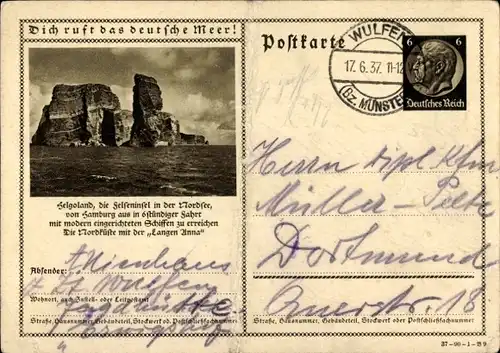 Dich ruft das deutsche Meer!
Helgoland, die Felseninsel in der Nordsee,
von Hamburg aus in 6stündiger Fahrt
mit modern eingerichteten Schiffen zu erreichen
Die Nordküste mit der „Langen Anna"
Absender:
Wulfen
Wohnort, auch Zustell- oder Leitpostamt
Straße, Hausnummer, Gebäudeteil, Stockwerk od. Postschließfachnummer
Postkarte
WULFEN
17.6.37. 11-12
(Bz. MÜNSTER
6 6
Deutsches Reich
Herrn Dipl. Kfm
Müller-
Dortmund
18
Straße, Hausnummer, Gebäudeteil, Stockwerk oder Postschließfachnummer
37-90-1-B9